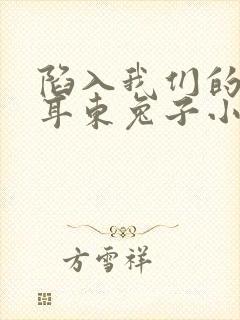 陷入我们的
耳东兔子小
方雪祥